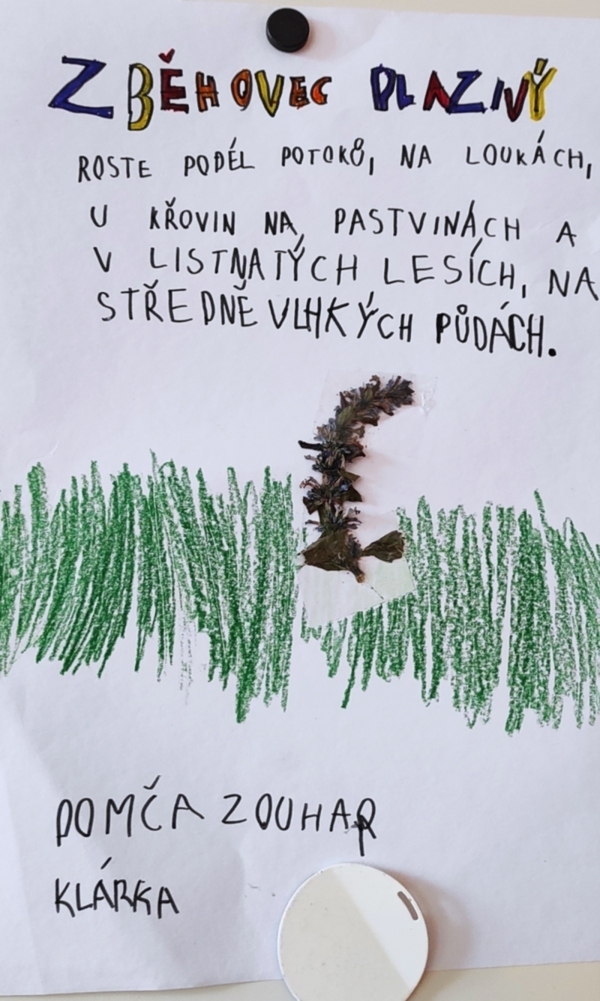 ZBĚHOVEC PLAZIVÝ
ROSTE PODÉL POTOKŮ, NA LOUKÁCH,
U KŘOVIN NA PASTVINÁCH A
V LISTNATÝCH LESÍCH, NA
STŘEDNĚ VLHKÝCH PŮDÁCH.
DOMČA ZOUHAR
KLÁRKA